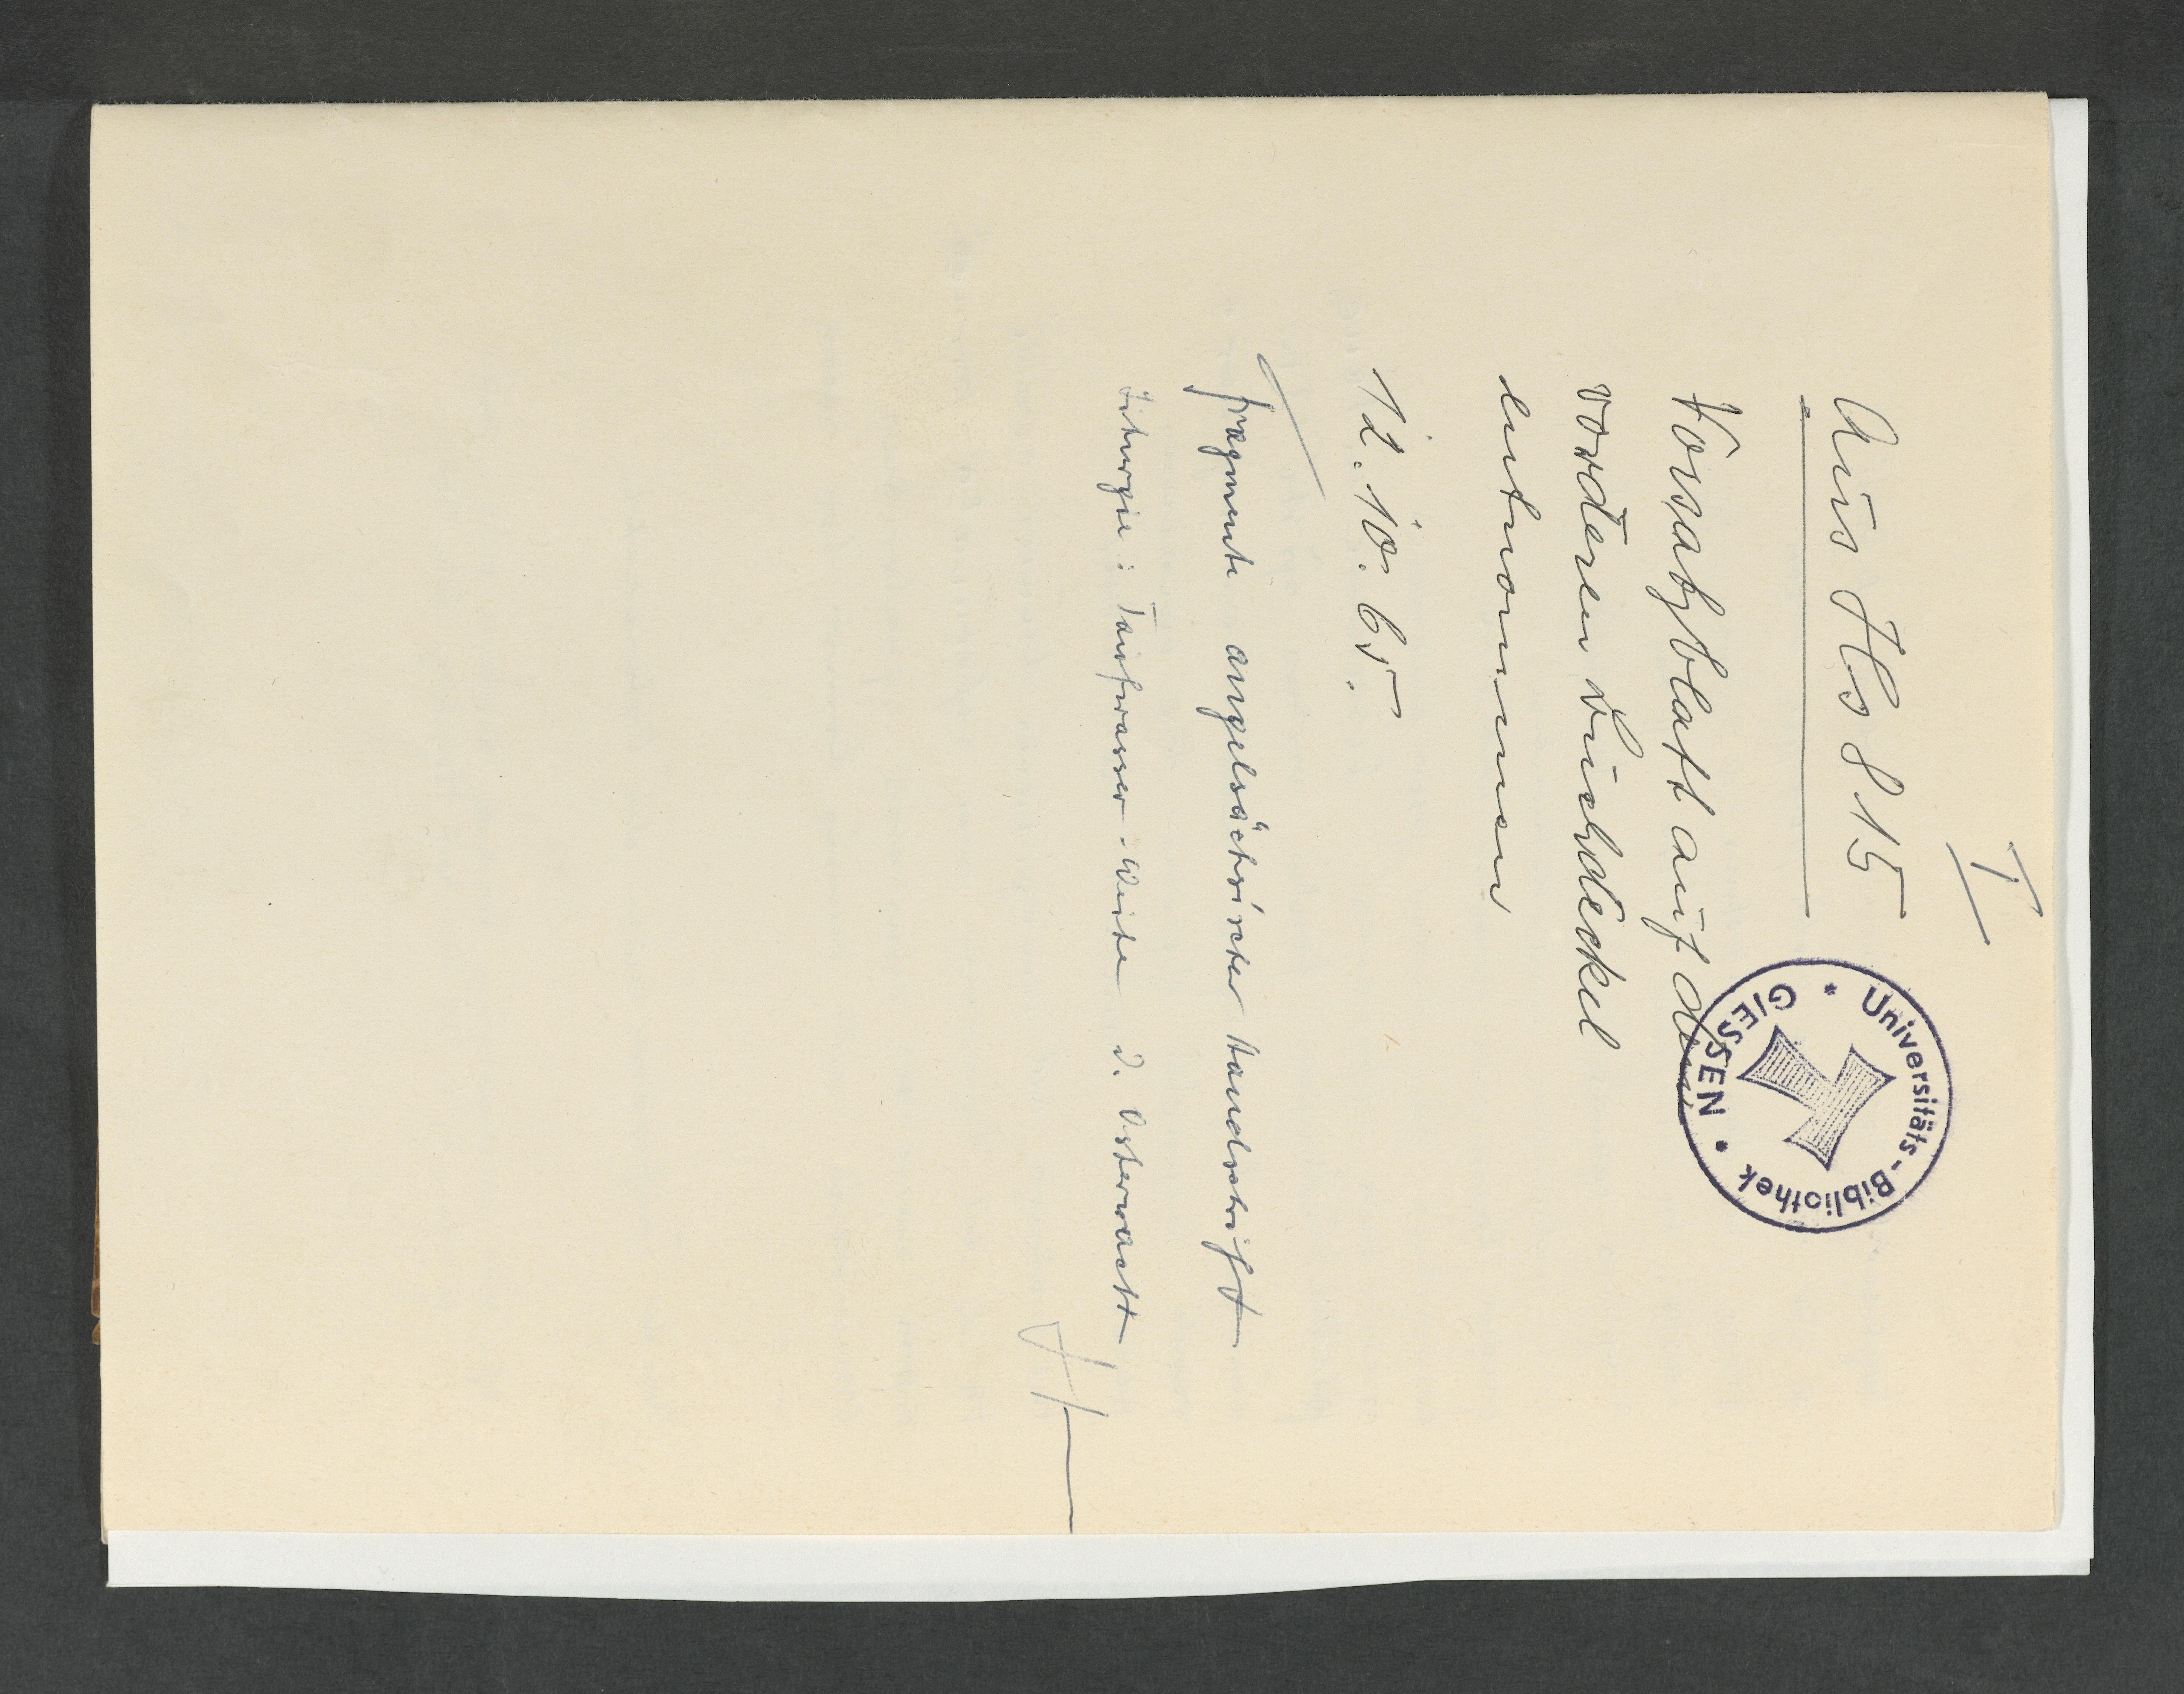 I
Aus Hs 815
Vorsatzblatt auf dem
vorderen Buchdeckel
entnommen
12.10.65.
Fragmente angelsächsischer Handschrift
Liturgie: Taufwasser-Weihe d. Osternacht
Universitäts-Bibliothek
GIESSEN